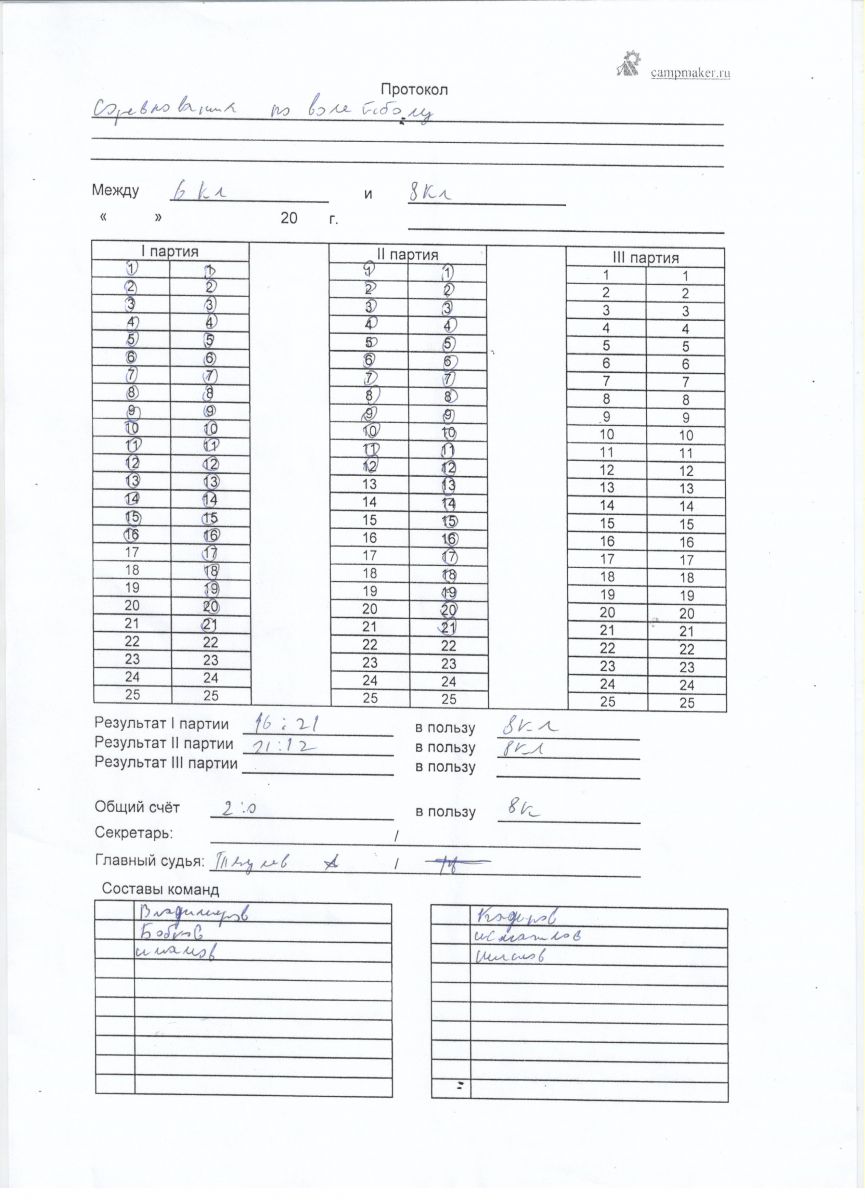 campmaker.ru
Протокол
Соревнования по волейболу
Между 6 Кл и 8 Кл
« » 20 г.
I партия II партия III партия
1 1 1 1 1 1
2 2 2 2 2 2
3 3 3 3 3 3
4 4 4 4 4 4
5 5 5 5 5 5
6 6 6 6 6 6
7 7 7 7 7 7
8 8 8 8 8 8
9 9 9 9 9 9
10 10 10 10 10 10
11 11 11 11 11 11
12 12 12 12 12 12
13 13 13 13 13 13
14 14 14 14 14 14
15 15 15 15 15 15
16 16 16 16 16 16
17 17 17 17 17 17
18 18 18 18 18 18
19 19 19 19 19 19
20 20 20 20 20 20
21 21 21 21 21 21
22 22 22 22 22 22
23 23 23 23 23 23
24 24 24 24 24 24
25 25 25 25 25 25
Результат I партии 16:21 в пользу 8 кл
Результат II партии 21:12 в пользу 8 кл
Результат III партии в пользу
Общий счёт 2:0 в пользу 8 к
Секретарь: /
Главный судья: /
Составы команд
Владимиров Кадыров
Бобров